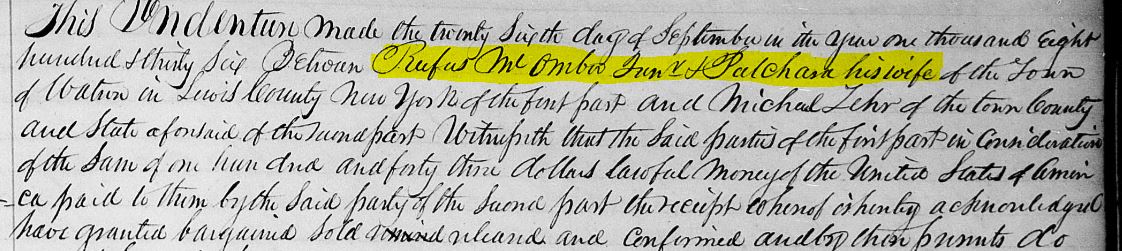 This Indenture made the twenty Sixth day of September in the Year one thousand Eight
hundred & thirty Six Between Rufus Mc Omber Junr & Pulchara his wife of the Town
of Watson in Lewis County New York of the first part and Michael Zehr of the town County
and State aforesaid of the Second part Witnesseth that the Said parties of the first part in Consideration
of the Sum of one hundred and forty three dollars lawful Money of the United States of Ameri
ca paid to them by the Said party of the Second part the receipt whereof is hereby acknowledged
have granted bargained Sold remised released and Confirmed and by these presents do